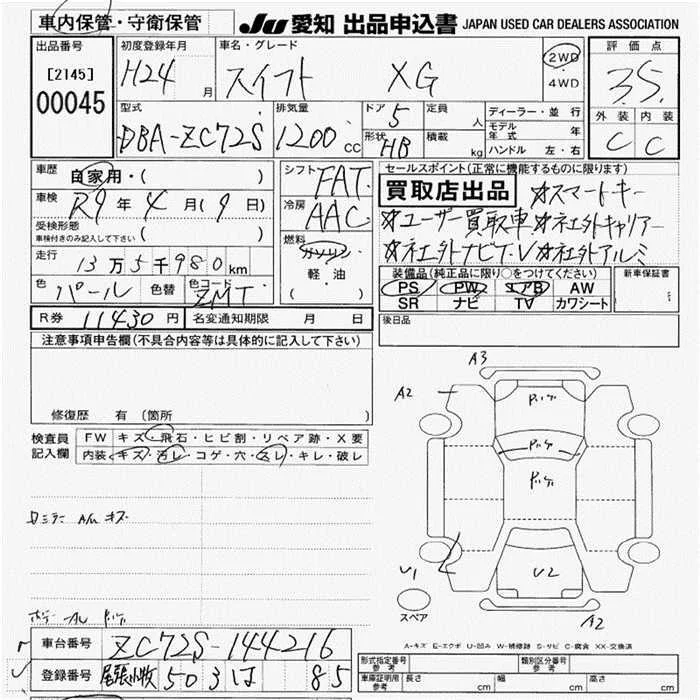 車内保管・守衛保管 JU 愛知 出品申込書 JAPAN USED CAR DEALERS ASSOCIATION
出品番号 初度登録年月 車名・グレード 評価点
[2145] H24 月 スイフト XG 2WD ・ 4WD 3.5
00045
型式 排気量 ドア 5 定員 人 ディーラー・並行 外装 内装
DBA-ZC72S 1200 cc 形状 HB 積載 kg モデル年式 年 C C
ハンドル 左・右
車歴 自家用・( ) シフト FAT セールスポイント(正常に機能するものに限ります)
車検 R9 年 4 月 (9 日) 冷房 AAC 買取店出品 ☆スマートキー
受検形態 ☆ユーザー買取車 ☆社外キャリアー
車検付きのみ記入して下さい ( ) 燃料 ガソリン ☆社外ナビT.V ☆社外アルミ
走行 13万5千980km 軽油 装備品(純正品に限り○をつけてください) 新車保証書
色 パール 色替 色コード ZMT ( ) PS PW エアB AW
SR ナビ TV カワシート
R券 11430 円 名変通知期限 月 日 後日品
注意事項申告欄(不具合内容等は具体的に記入して下さい)
修復歴 有(箇所
検査員 FW キズ・飛石・ヒビ割・リペア跡・X要
記入欄 内装 キズ・汚レ・コゲ・穴・スレ・キレ・破レ
A3
A2
U2
U1
スペア
A2
A-キズ E-エクボ U-凹み W-補修跡 S-サビ C-腐食 XX-交換済
車台番号 ZC72S-144216 形式指定番号 参考 類別区分番号 参考
登録番号 尾張小牧 503 は 85 車庫証明用 参考 長さ cm 幅 cm 高さ cm